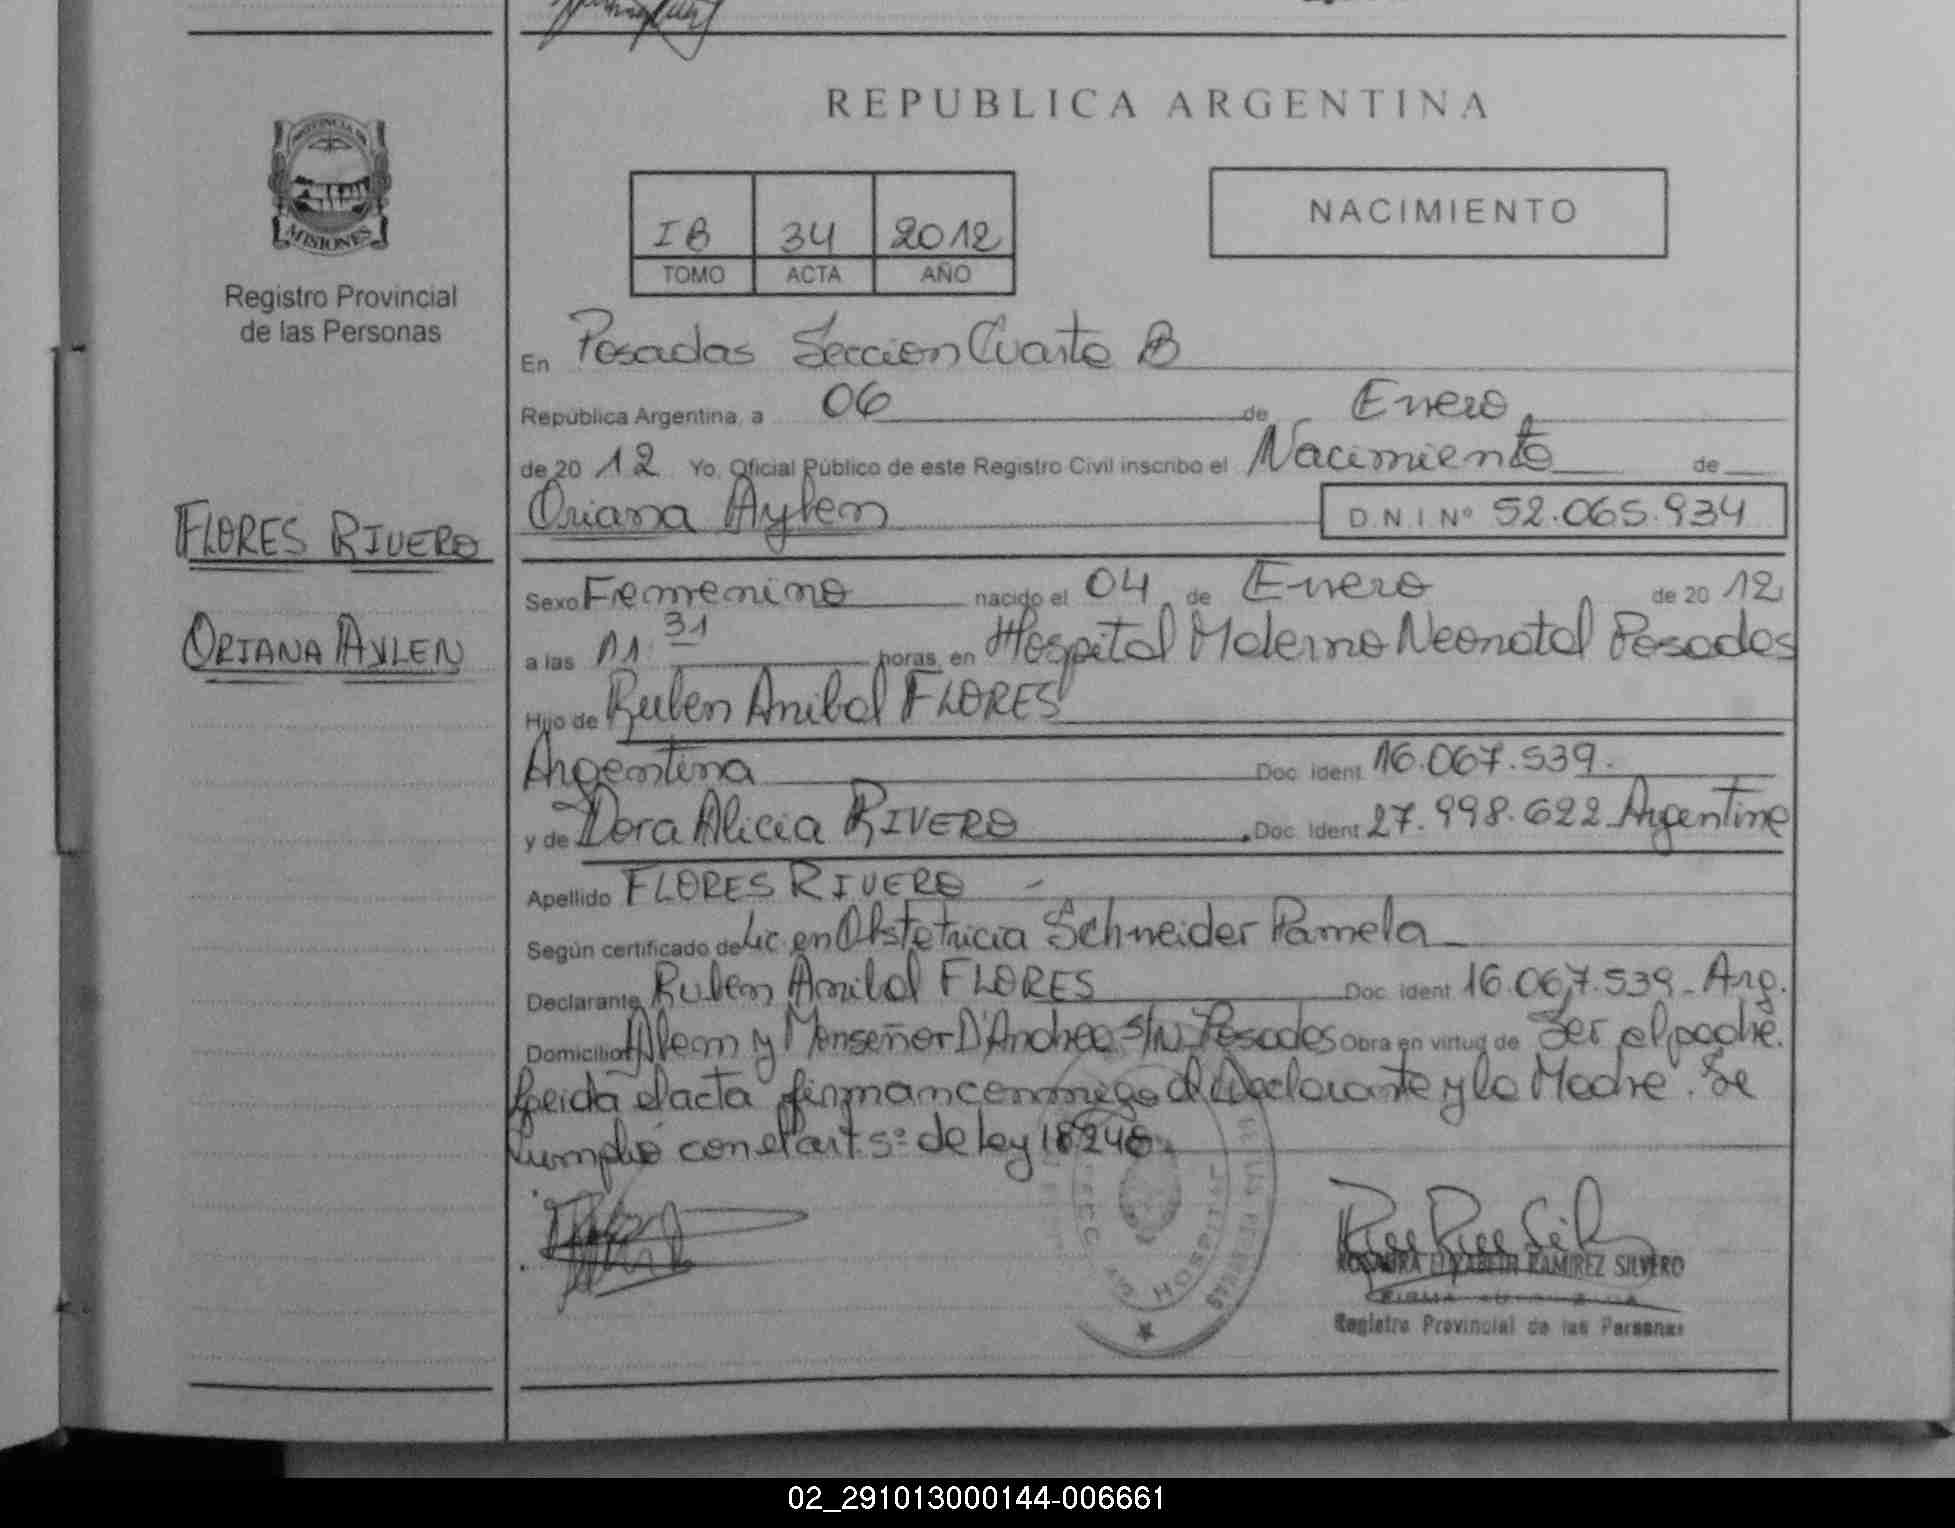 REPUBLICA ARGENTINA
PROVINCIA DE
MISIONES
Registro Provincial
de las Personas
IB 34 2012
TOMO ACTA AÑO
NACIMIENTO
En Posadas Seccion Cuarta B
República Argentina, a 06 de Enero
de 20 12 Yo, Oficial Público de este Registro Civil inscribo el Nacimiento de
Oriana Aylen D.N.I Nº 52.065.934
FLORES RIVERO
ORIANA AYLEN
Sexo Femenino nacido el 04 de Enero de 20 12
a las 11:31 horas, en Hospital Materno Neonatal Posadas
Hijo de Ruben Anibal FLORES
Argentina Doc. Ident. 16.067.539.
y de Dora Alicia RIVERO Doc. Ident. 27.998.622 Argentina
Apellido FLORES RIVERO -
Según certificado de Lic. en Obstetricia Schneider Pamela
Declarante Ruben Anibal FLORES Doc. Ident. 16.067.539 - Arg.
Domicilio Alem y Monseñor D'Andrea S/N Posadas Obra en virtud de Ser el padre.
Leida el acta firman conmigo el Declarante y la Madre. Se
Cumplió con el art. 5º de ley 18248.
HOSPITAL
ELIZABETH RAMIREZ SILVERO
Registro Provincial de las Personas
02_291013000144-006661